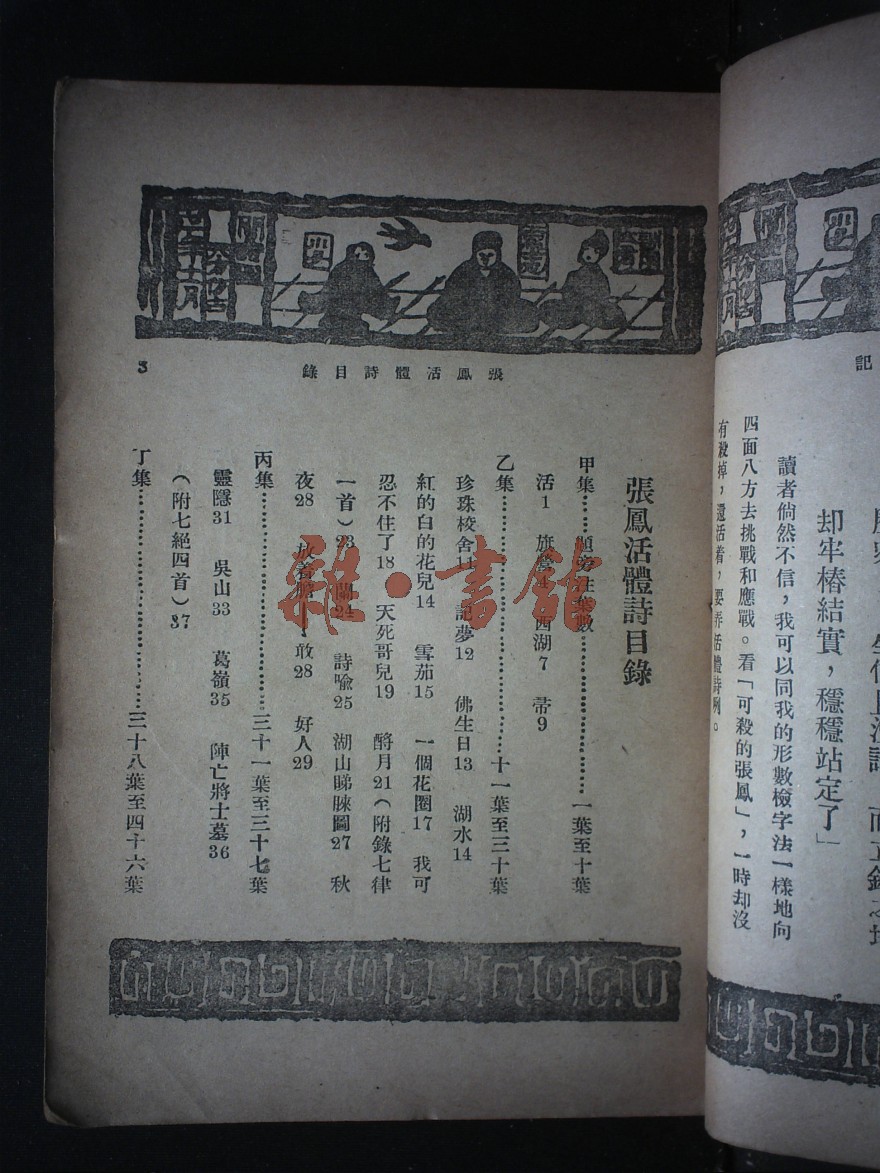 張鳳活體詩目錄
3
張鳳活體詩目錄
甲集……題旁注葉數……一葉至十葉
活1 旗營4 西湖7 帚9
乙集……十一葉至三十葉
珍珠校舍11 記夢12 佛生日13 湖水14
紅的白的花兒14 雪茄15 一個花圈17 我可
忍不住了18 天死哥兒19 醉月21(附錄七律
一首)23 蘭24 詩喩25 湖山睇睞圖27 秋
夜28 放着膽——敢28 好人29
丙集……三十一葉至三十七葉
靈隱31 吳山33 葛嶺35 陣亡將士墓36
(附七絕四首)37
丁集……三十八葉至四十六葉
雜·書館
記
却牢樁結實，穩穩站定了」
讀者倘然不信，我可以同我的形數檢字法一樣地向
四面八方去挑戰和應戰。看「可殺的張鳳」，一時却沒
有殺掉，還活着，要弄活體詩咧。